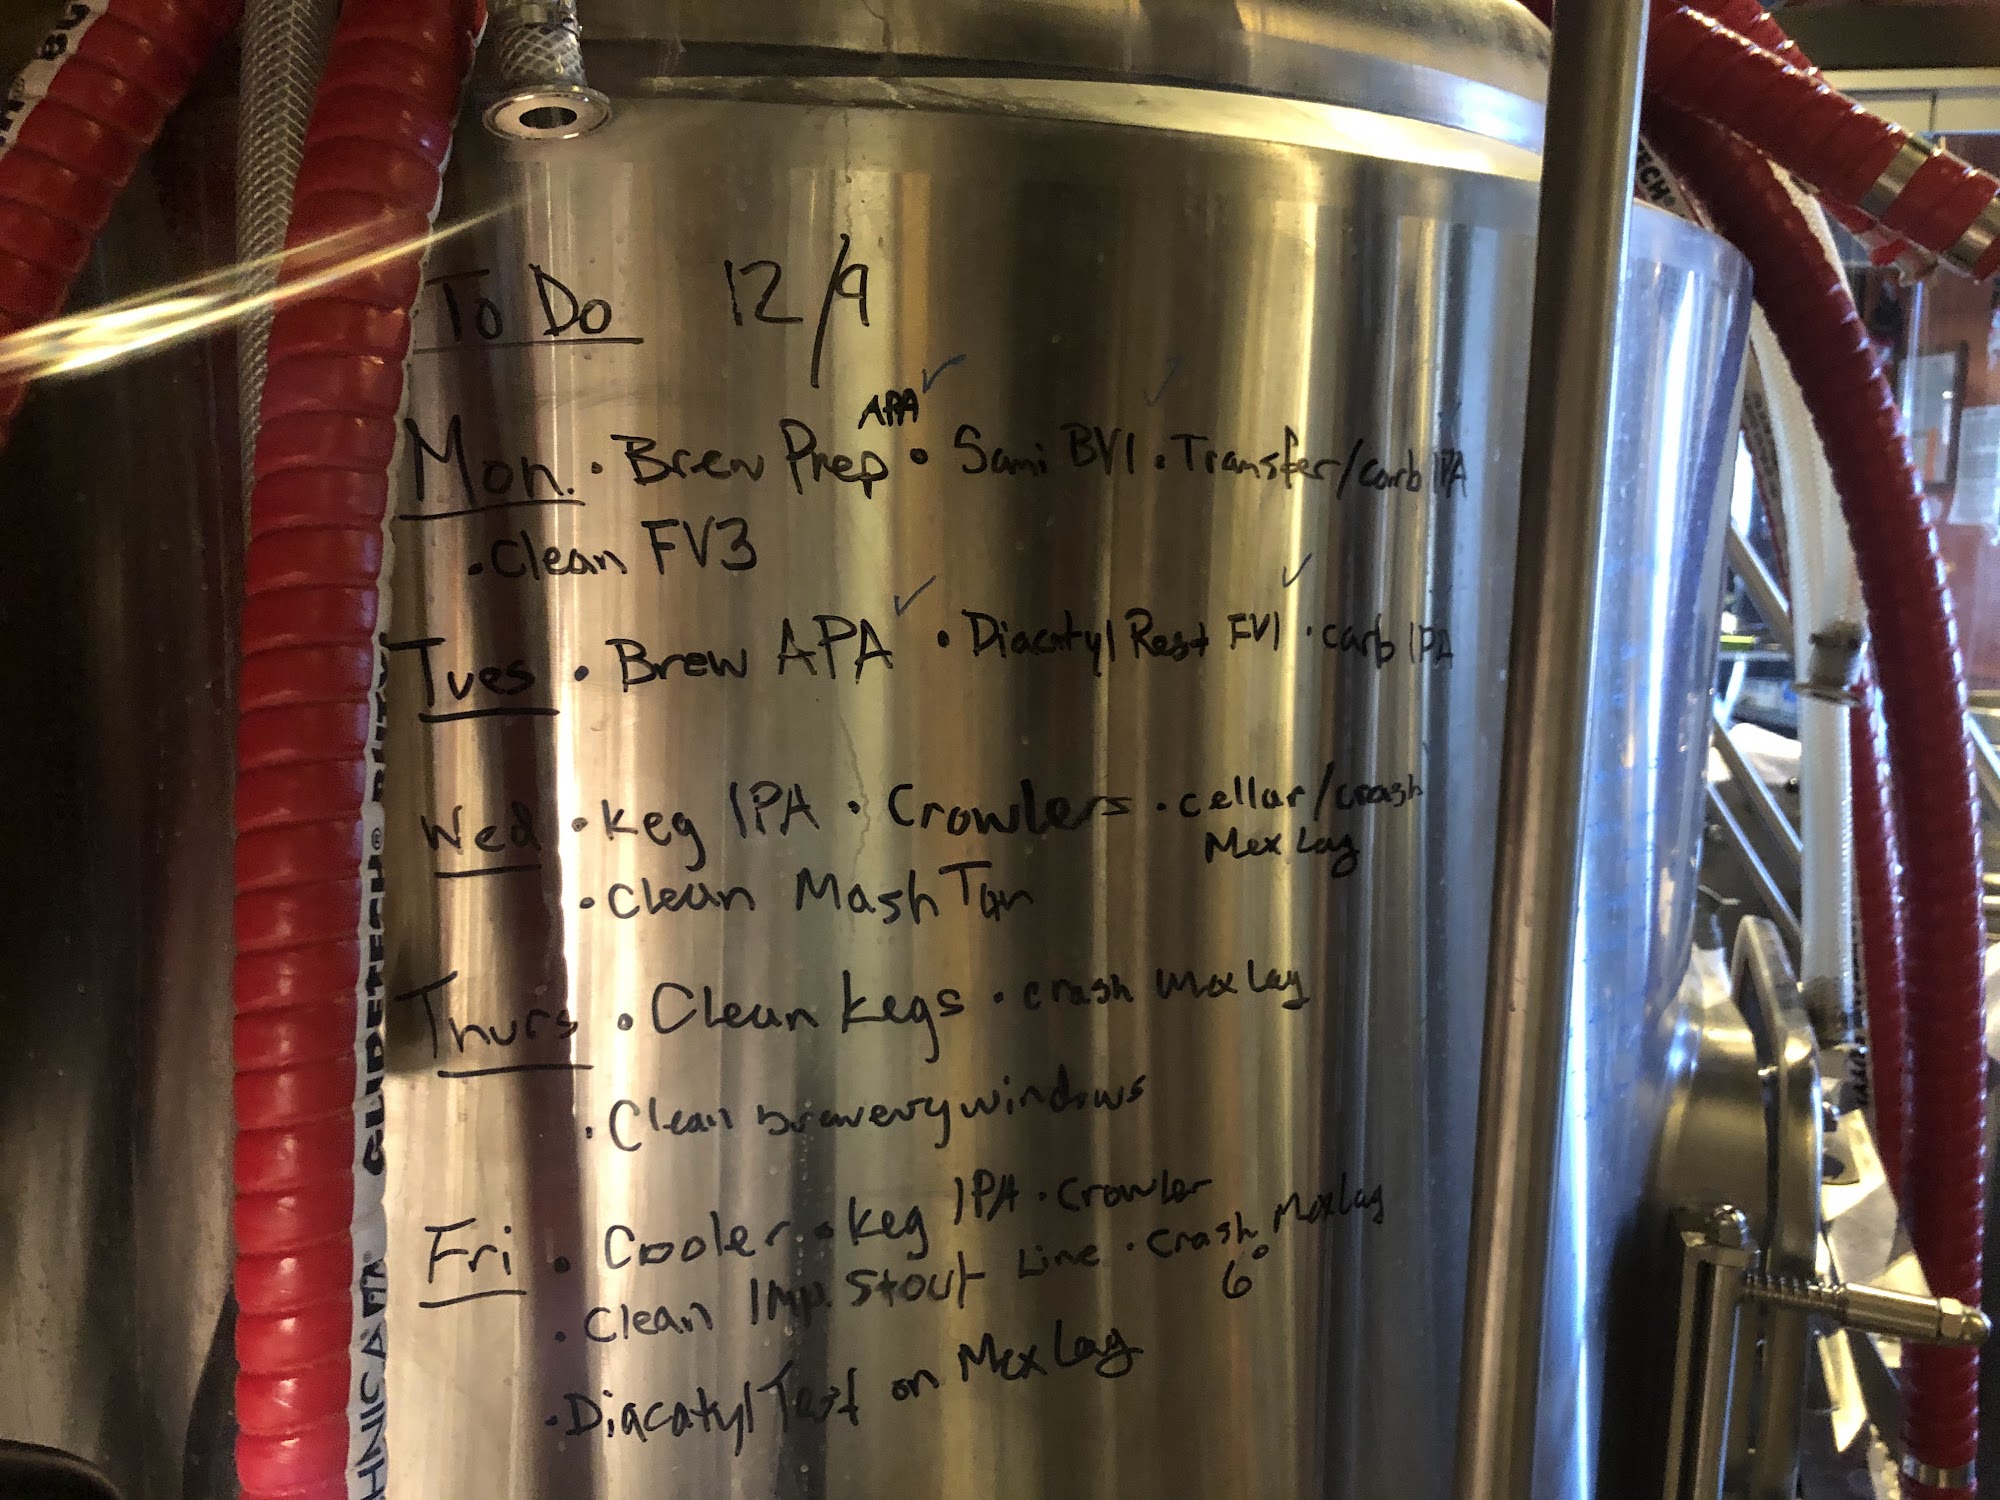 To Do 12/9
APA
Mon. • Brew Prep • Sani BV1 • Transfer/carb IPA
• Clean FV3
Tues • Brew APA • Diacatyl Rest FV1 • carb IPA
Wed • Keg IPA • Crowlers • cellar/crash
Mex Lag
• Clean Mash Tun
Thurs • Clean Kegs • crash Mex Lag
• Clean brewery windows
Fri • Cooler • Keg IPA • Crowler
• Clean Imp. Stout Line • Crash Mex Lag
6°
• Diacatyl Test on Mex Lag
GLIDETECH®